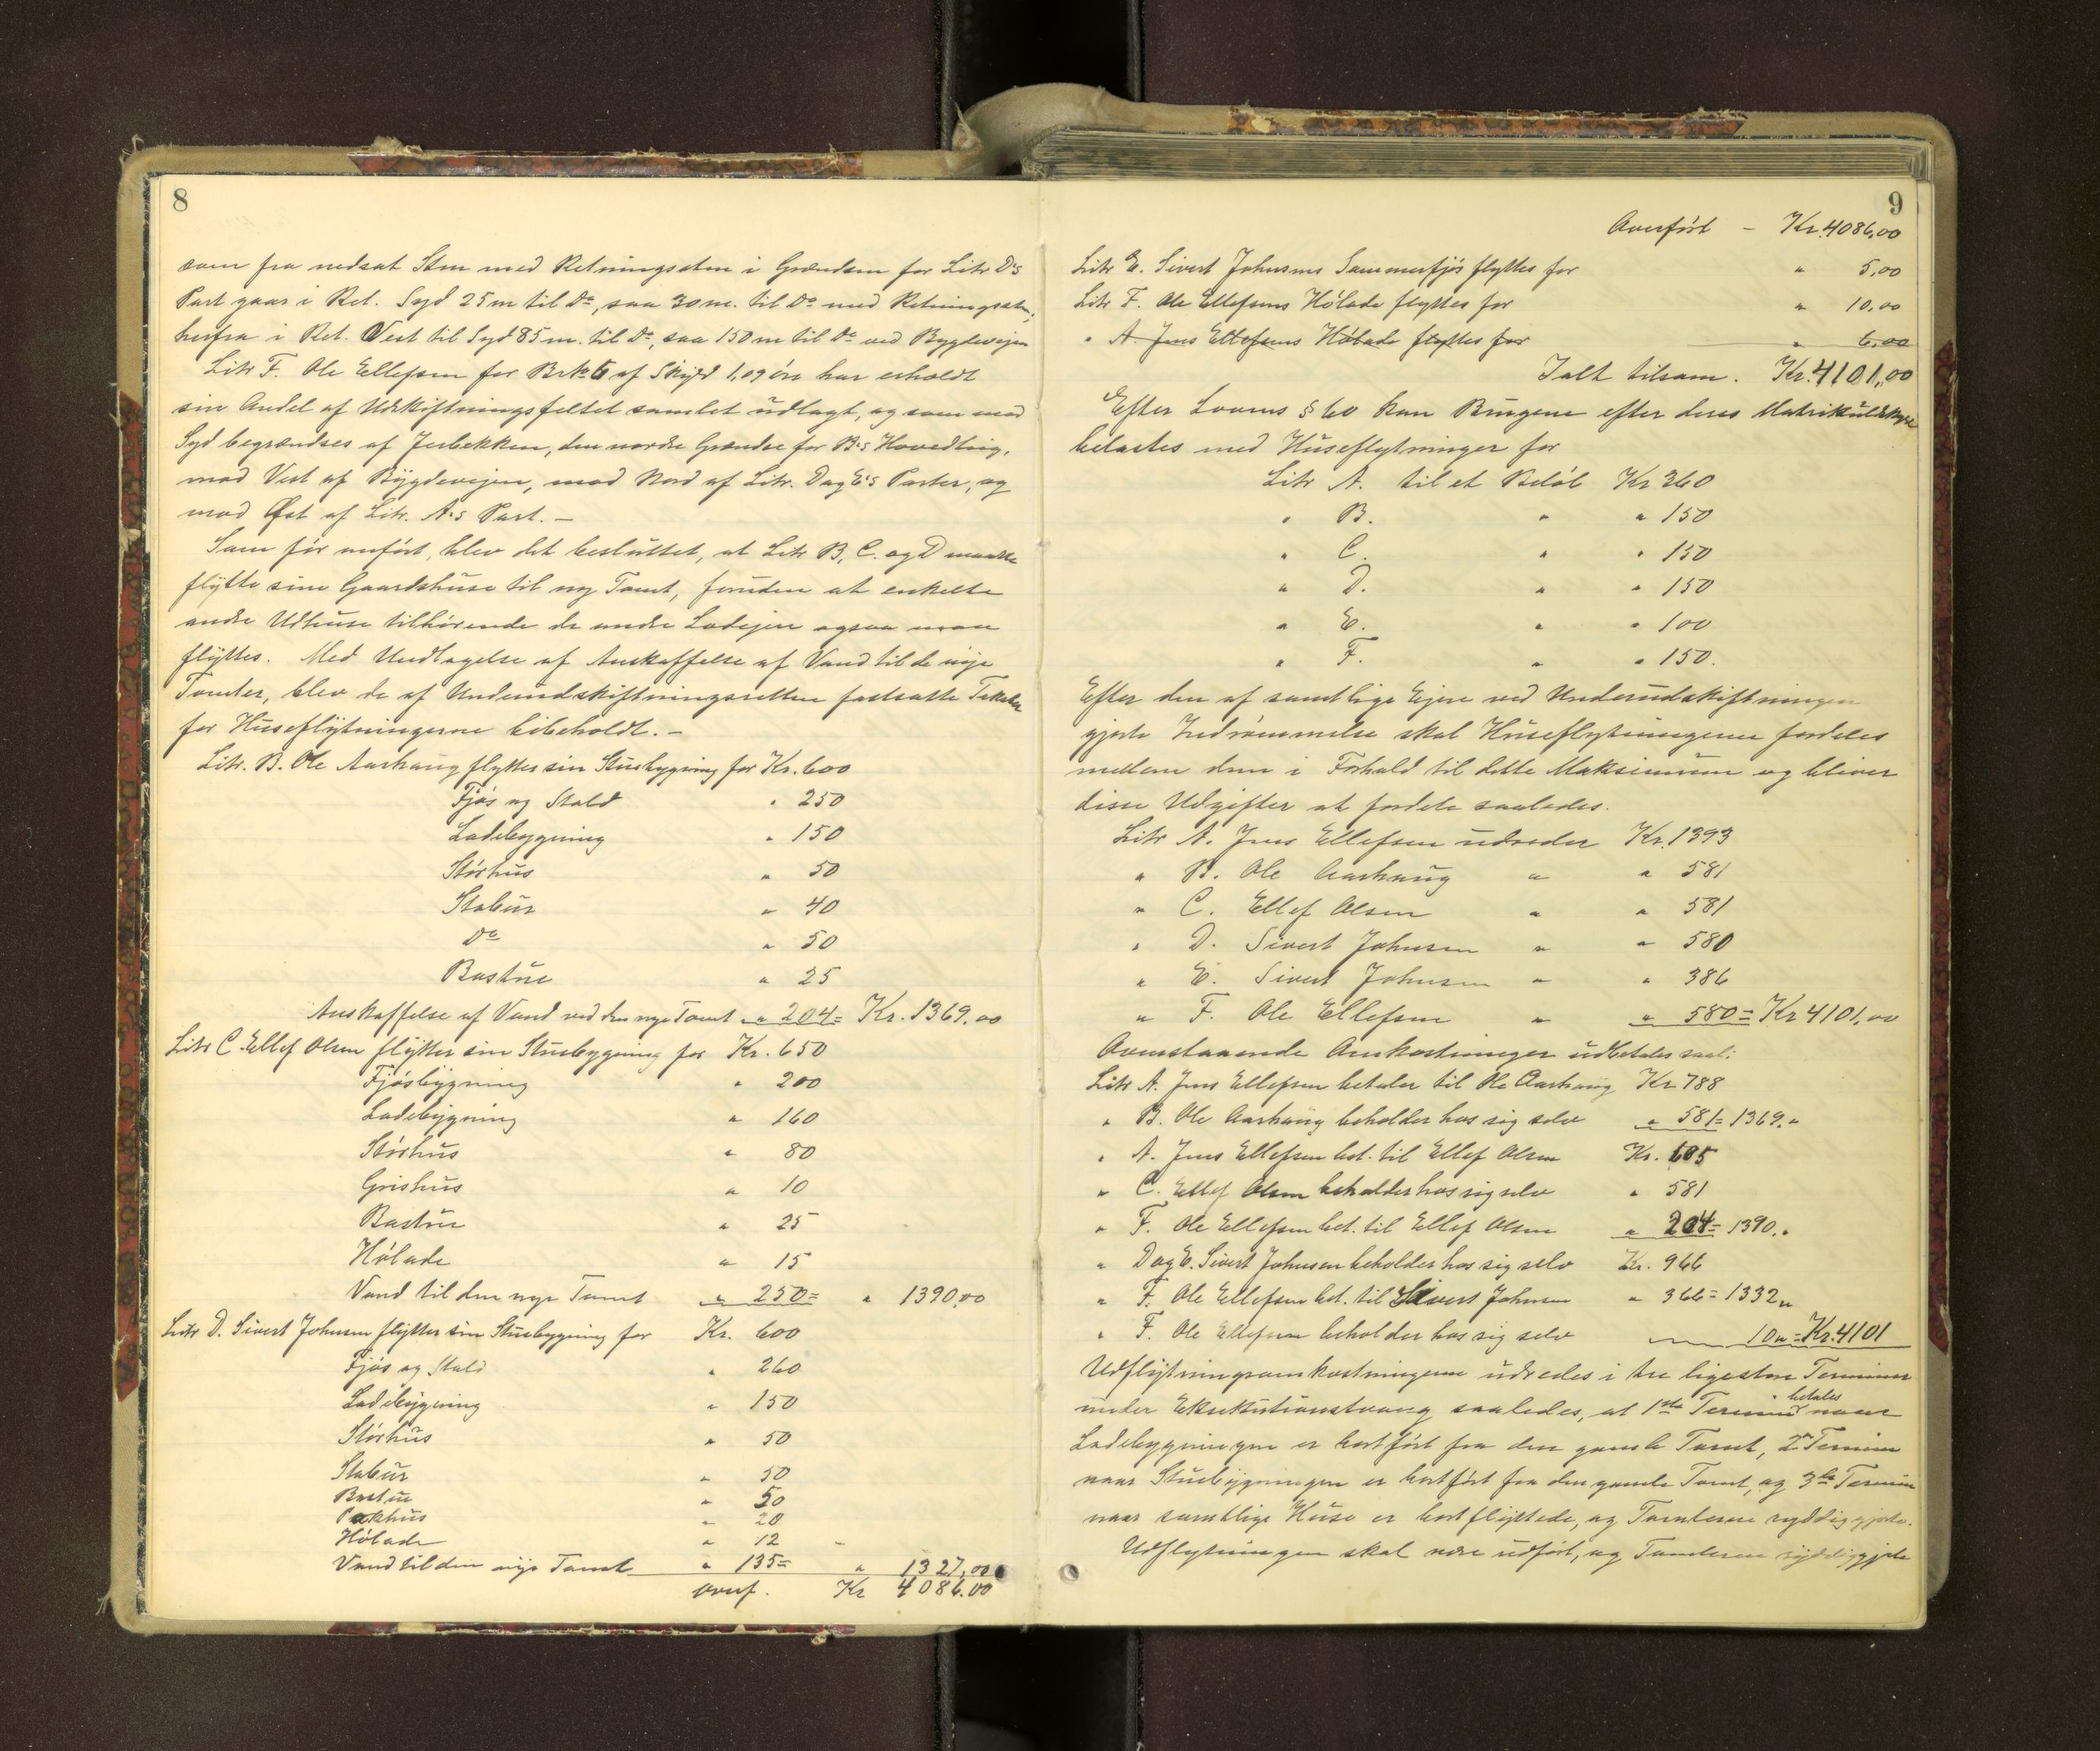 8
som fra nedsat Sten med Retningssten i Grændsen for Litr D's
Part gaar i Ret. Syd 25 m til Do, saa 30 m. til Do med Retningssten,
herfra i Ret. Vest til Syd 85 m. til Do, saa 150 m til Do ved Bygdevejen
Litr F. Ole Ellefsen for Br№ 6 af Skyld 1,09 öre har erholdt
sin Andel af Udskiftningsfeltet samlet udlagt, og som mod
Syd begrændses af Jerbekken, den nordre Grændse for B's Hovedteig,
mod Vest af Bygdevejen, mod Nord af Litr. D og E's Parter, og
mod Øst af Litr. A's Part. –
Som för anfört, blev det besluttet, at Litr B, C. og D maatte
flytte sine Gaardshuse til ny Tomt, foruden at enkelte
andre Udhuse tilhörende de andre Lodejere ogsaa maa
flyttes. Med Undtagelse af Anskaffelse af Vand til de nye
Tomter, blev de af Underudskiftningsretten fastsatte Takster
for Huseflytningerne bibeholdt. –
Litr. B. Ole Aarhaug flytter sin Stuebygning for Kr. 600
Fjös og Stald " 250
Ladebygning " 150
Störhus " 50
Stabur " 40
Do " 50
Bastue " 25
Anskaffelse af Vand ved den nye Tomt " 204 = Kr. 1369.00
Litr C. Ellef Olsen flytter sin Stuebygning for Kr. 650
Fjösbygning " 200
Ladebygning " 160
Störhus " 80
Grishus " 10
Bastue " 25
Hölade " 15
Vand til den nye Tomt " 250 = " 1390,00
Litr D. Sivert Johnsen flytter sin Stuebygning for Kr. 600
Fjös og Stald " 260
Ladebygning " 150
Störhus " 50
Stabur " 50
Bastue " 50
Pakhus " 20
Hölade " 12
Vand til den nye Tomt " 135 = " 1327,00
overf. Kr 4086.00
9
Overfört – Kr. 4086,00
Litr E. Sivert Johnsens Sommerfjös flyttes for " 5,00
Litr F. Ole Ellefsens Hölade flyttes for " 10,00
" A. Jens Ellefsens Hölade flyttes for " 6,00
Ialt tilsam. Kr. 4101,00
Efter Lovens § 60 kan Brugene efter deres Matrikulskyld
belastes med Huseflytninger for
Litr A. til et Belöb Kr 360
" B. " " 150
" C. " " 150
" D. " " 150
" E. " " 100
" F. " " 150.
Efter den af samtlige Ejere ved Underudskiftningen
gjorte Indrömmelse skal Huseflytningerne fordeles
mellem dem i Forhold til dette Maksimum og bliver
disse Udgifter at fordele saaledes.
Litr A. Jens Ellefsen udreder Kr. 1393
" B. Ole Aarhaug " " 581
" C. Ellef Olsen " " 581
" D. Sivert Johnsen " " 580
" E. Sivert Johnsen " " 386
" F. Ole Ellefsen " " 580 = Kr 4101,00
Ovenstaaende Omkostninger udbetales saal:
Litr A. Jens Ellefsen betaler til Ole Aarhaug Kr 788
" B. Ole Aarhaug beholder hos sig selv " 581 = 1369. "
" A. Jens Ellefsen bet. til Ellef Olsen Kr. 605
" C. Ellef Olsen beholder hos sig selv " 581
" F. Ole Ellefsen bet. til Ellef Olsen " 204 = 1390. "
" D og E. Sivert Johnsen beholder hos sig selv Kr. 966
" F. Ole Ellefsen bet. til Sivert Johnsen " 366 = 1332 "
" F. Ole Ellefsen beholder hos sig selv 10 " = Kr. 4101
Udflytningsomkostningerne udredes i tre ligestore Terminer
under Eksekutionstvang saaledes, at 1ste Termin betales naar
Ladebygningen er bortfört fra den gamle Tomt, 2n Termin
naar Stuebygningen er bortfört fra den gamle Tomt, og 3die Termin
naar samtlige Huse er bortflyttede, og Tomterne ryddiggjorte.
Udflytningen skal være udfört, og Tomterne ryddiggjorte